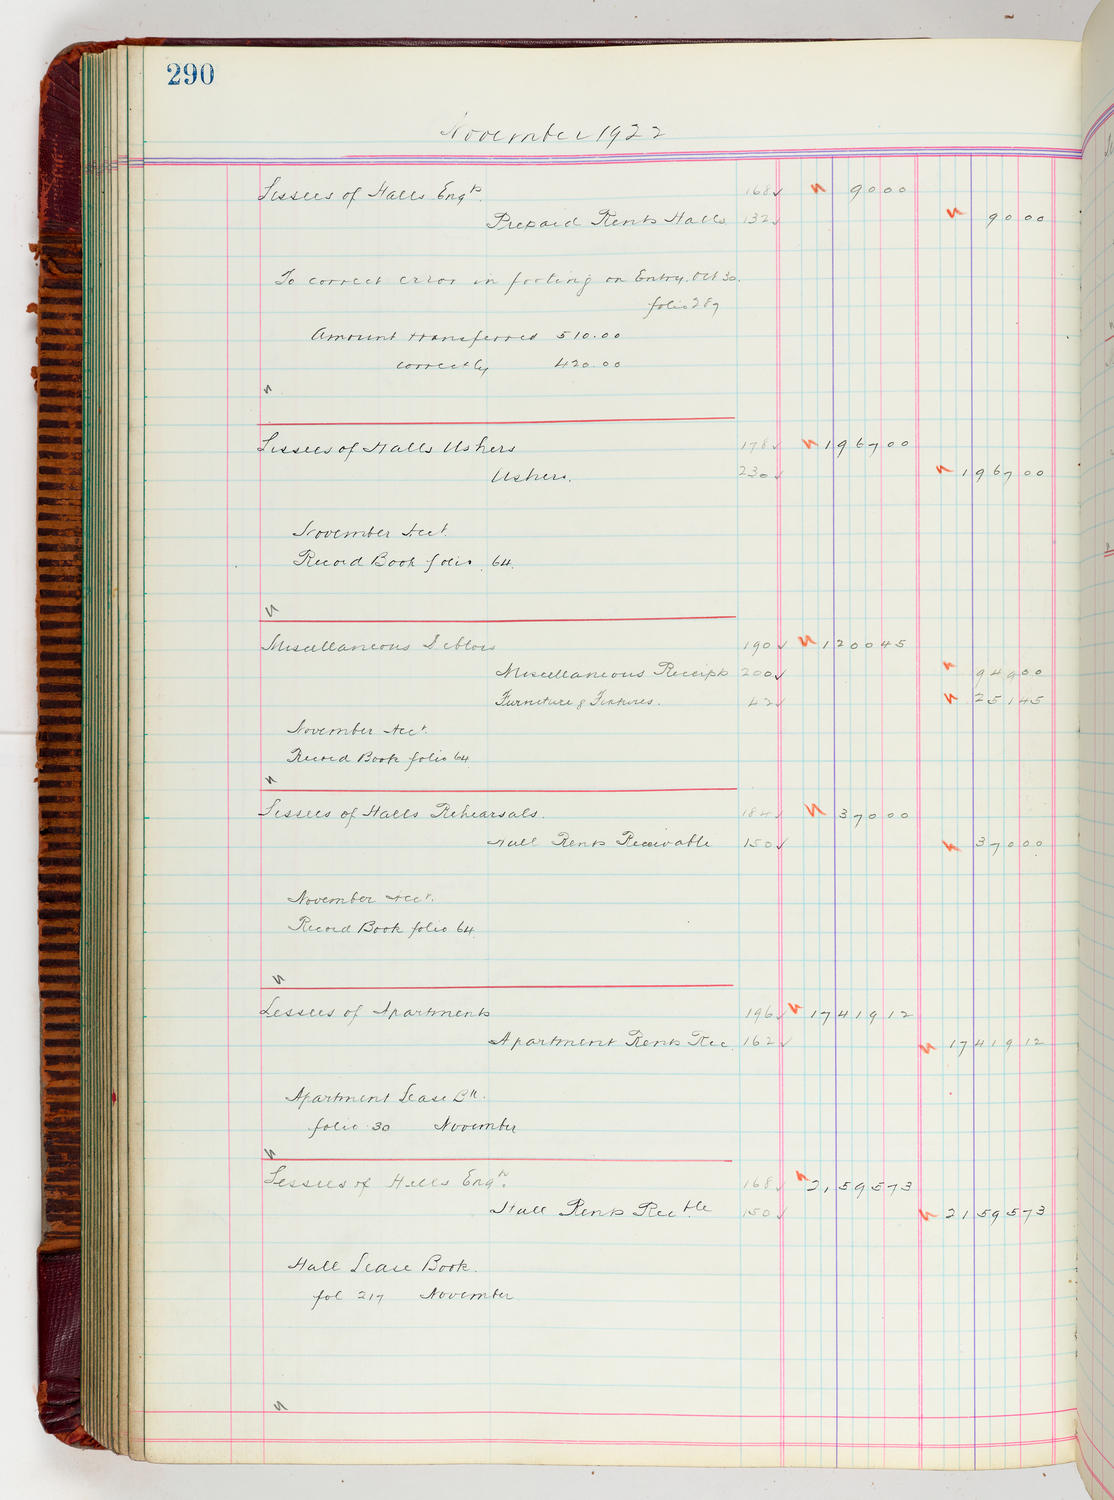 290
November 1922
Lessees of Halls Engts. 168 ✓ 90 00
Prepaid Rents Halls 132 ✓ 90 00
To correct error in footing on Entry. Oct 30.
folio 289
Amount transferred 510.00
correctly 420.00
Lessees of Halls Ushers 178 ✓ 1967 00
Ushers. 230 ✓ 1967 00
November Acct.
Record Book folio 64.
Miscellaneous Debtors 190 ✓ 1200 45
Miscellaneous Receipts 200 ✓ 949 00
Furniture & Fixtures. 42 ✓ 251 45
November Acct.
Record Book folio 64
Lessees of Halls Rehearsals. 184 ✓ 370 00
Hall Rents Receivable 150 ✓ 370 00
November Acct.
Record Book folio 64
Lessees of Apartments 196 ✓ 17419 12
Apartment Rents Rec. 162 ✓ 17419 12
Apartment Lease Bk.
folio 30 November
Lessees of Halls Engts. 168 ✓ 21,595 73
Hall Rents Rec ble 150 ✓ 21595 73
Hall Lease Book.
fol 217 November